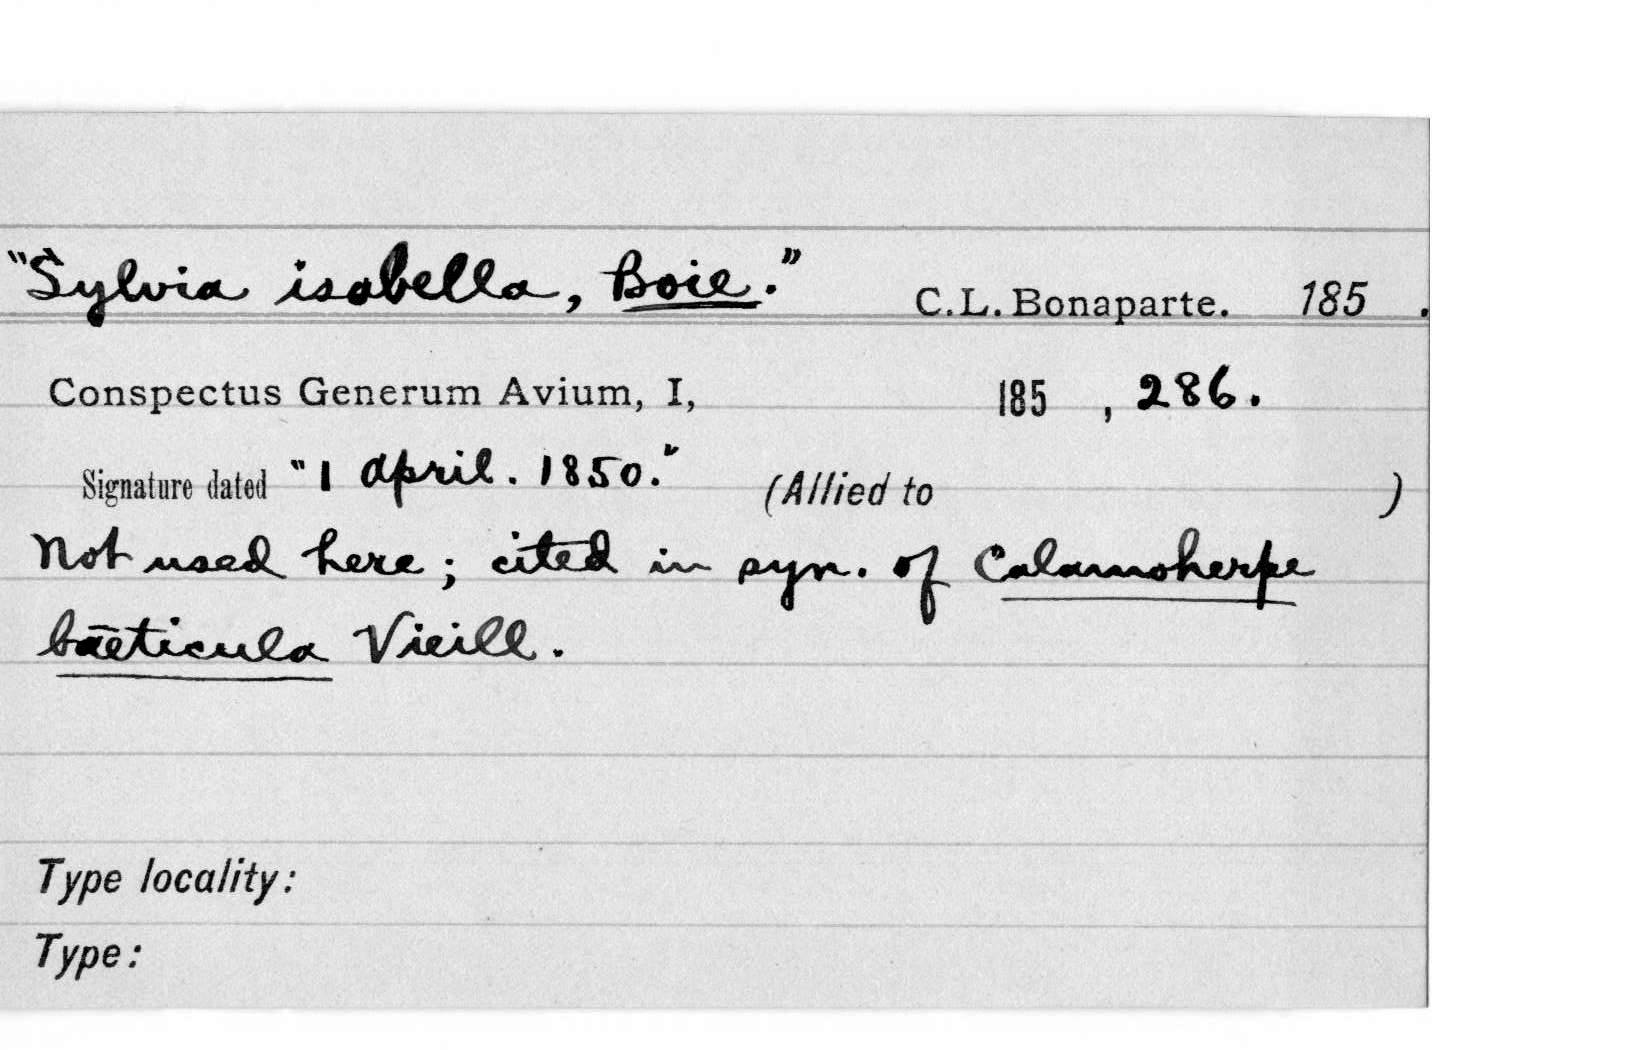 "Sylvia isabella, Boie." C.L. Bonaparte. 185 .
Conspectus Generum Avium, I, 185 , 286.
Signature dated "1 April. 1850." (Allied to )
Not used here; cited in syn. of Calamoherpe
baeticula Vieill.
Type locality:
Type: